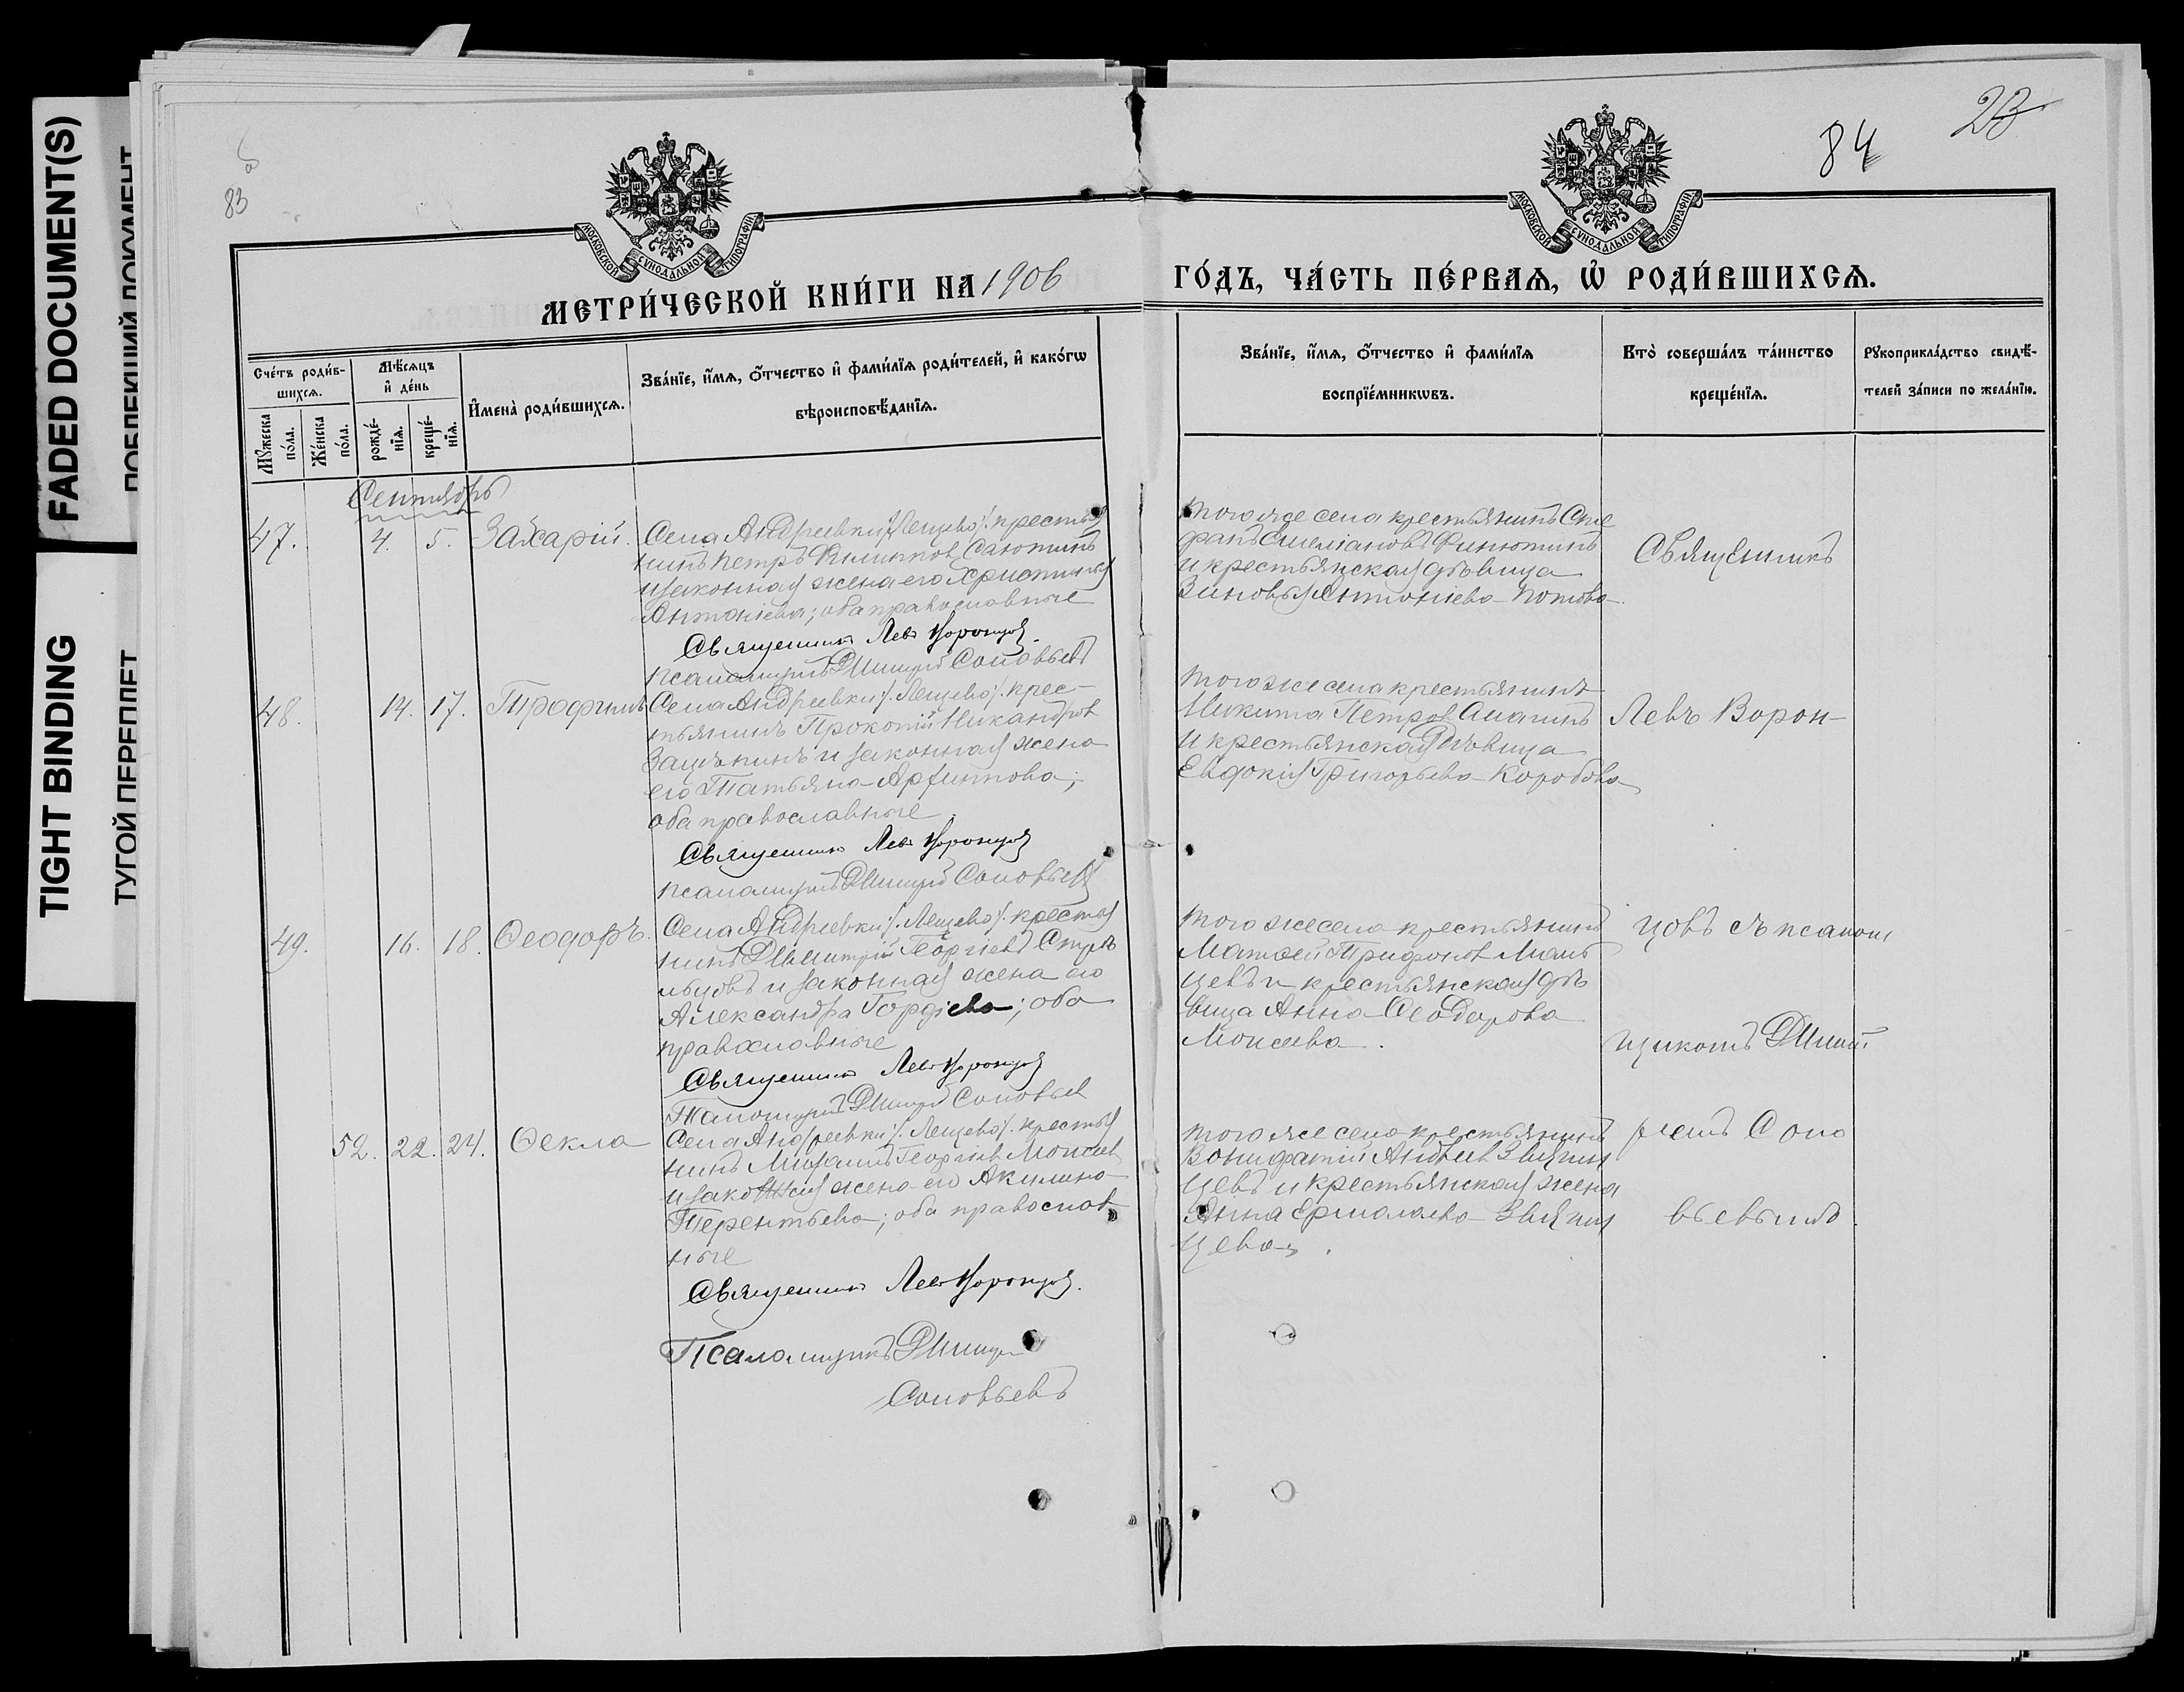 FADED DOCUMENT(S)
TIGHT BINDING
ТУГОЙ ПЕРЕПЛЕТ
83
84
23
МОСКОВСКОЙ СѴНОДАЛЬНОЙ ТИПОГРАФІИ
МОСКОВСКОЙ СѴНОДАЛЬНОЙ ТИПОГРАФІИ
МЕТРИ́ЧЕСКОЙ КНИ́ГИ НА 1906 ГО́ДЪ, ЧА́СТЬ ПЕ́РВАѦ, Ѡ҆ РОДИ́ВШИХСѦ.
Сче́тъ роди́в-
шихсѧ.
Мꙋ́жеска по́ла.
Же́нска по́ла.
Мѣ́сѧцъ
и҆ де́нь
рожде́-
нїѧ.
креще́-
нїѧ.
И҆мена̀ роди́вшихсѧ.
Зва́нїе, и҆́мѧ, ѻ҆́тчество и҆ фами́лїѧ роди́телей, и҆ како́гѡ
вѣроисповѣ́данїѧ.
Зва́нїе, и҆́мѧ, ѻ҆́тчество и҆ фами́лїѧ
воспрїе́мникѡвъ.
Кто̀ соверша́лъ та́инство
креще́нїѧ.
Рꙋкоприкла́дство свидѣ́-
телей за́писи по жела́нїю.
Сентябрь
47. 4. 5. Захарій.
Села Андреевки /:Лещево:/ крестья
нинъ Петръ Филиппов
и законная жена его Христина
Антоніева; оба православные
Священникъ Левъ Воронцов.
псаломщикъ Димитрій Соловьевъ
того же села крестьянинъ Сте
фанъ
и крестьянская дѣвица
Зиновья Антоніева Попова
Священникъ
48. 14. 17. Трофимъ
Села Андреевки /:Лещево:/ крес-
тьянинъ Прокопій Никандров
и законная жена
его Татьяна
оба православные
Священникъ Левъ Воронцов
псаломщикъ Димитрій Соловьев
того же села крестьянинъ
Никита Петров
и крестьянская дѣвица
Евдокія Григорьева Коробова
Левъ Ворон-
49. 16. 18. Ѳеодоръ.
Села Андреевки /:Лещево:/ крестья
нинъ Димитрій Георгіев Стрѣ
льцовъ и законная жена его
Александра Гордіева; оба
православные
Священникъ Левъ Воронцов
Псаломщикъ Димитрій Соловьев
того же села крестьянинъ
Матѳей Трифонов Маль
цевъ и крестьянская дѣ
вица Анна Ѳеодорова
Моисеева.
цовъ съ псалом
щикомъ Димит
52. 22. 24. Ѳекла
Села Андреевки /:Лещево:/ крестья
нинъ Михаилъ Георгіев Моисеев
и законная жена его Акилина
Терентьева; оба православ
ные
Священникъ Левъ Воронцов.
Псаломщикъ Димитрій
Соловьевъ
того же села крестьянинъ
Вонифатій Звягин
цевъ и крестьянская жена
Анна Ермолаева Звягин
цева.
ріемъ Соло
вьевымъ.